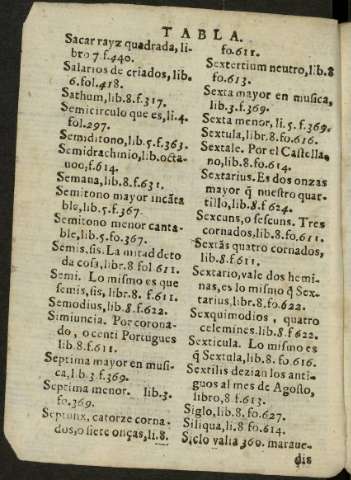 TABLA.
Sacar rayz quadrada, li-
bro 7. f.440.
Salarios de criados, lib.
6. fol.418.
Sathum, lib.8. f.317.
Semicirculo que es, li.4.
fol.297.
Semiditono, lib.5. f.363.
Semidrachinio, lib. octa-
uo, f.614.
Semana, lib.8. f.631.
Semitono mayor incãta
ble, lib.5. f.367.
Semitono menor canta-
ble, lib.5. fo.367.
Semis.sis. La mitad de to
da cosa, libr.8 fol 611.
Semi. Lo mismo es que
semis, sis, libr.8. f.611.
Semodius, lib.8. f.622.
Simiuncia. Por corona-
do, o centi Portugues
lib.8. f.611.
Septima mayor en musi-
ca, lib.3. f.369.
Septima menor. lib.3.
fo.369.
Septunx, catorze corna-
dos, o siete onças, li.8.
fo.611.
Sextertium neutro, lib.8
fo.613.
Sexta mayor en musica,
lib.3. f.369.
Sexta menor, li.5. f.369.
Sextula, libr.8. fo.616.
Sextale. Por el Castella-
no, lib.8. fo.614.
Sextarius. Es dos onzas
mayor q̃ nuestro quar-
tillo, lib.8. f 624.
Sexcuns, o sescuns. Tres
cornados, lib.8. fo.611.
Sextãs quatro cornados,
lib.8. f.611.
Sextario, vale dos hemi-
nas, es lo mismo q̃ Sex-
tarius, libr.8. fo.622.
Sexquimodios, quatro
celemines. lib.8. f 622.
Sexticula. Lo mismo es
q̃ Sextula, lib.8. fo.616.
Sextilis dezian los anti-
guos al mes de Agosto,
libro, 8 f.613.
Siglo, lib.8. fo.627.
Siliqua, li.8. fo 614.
Siclo valia 360. maraue-
dis